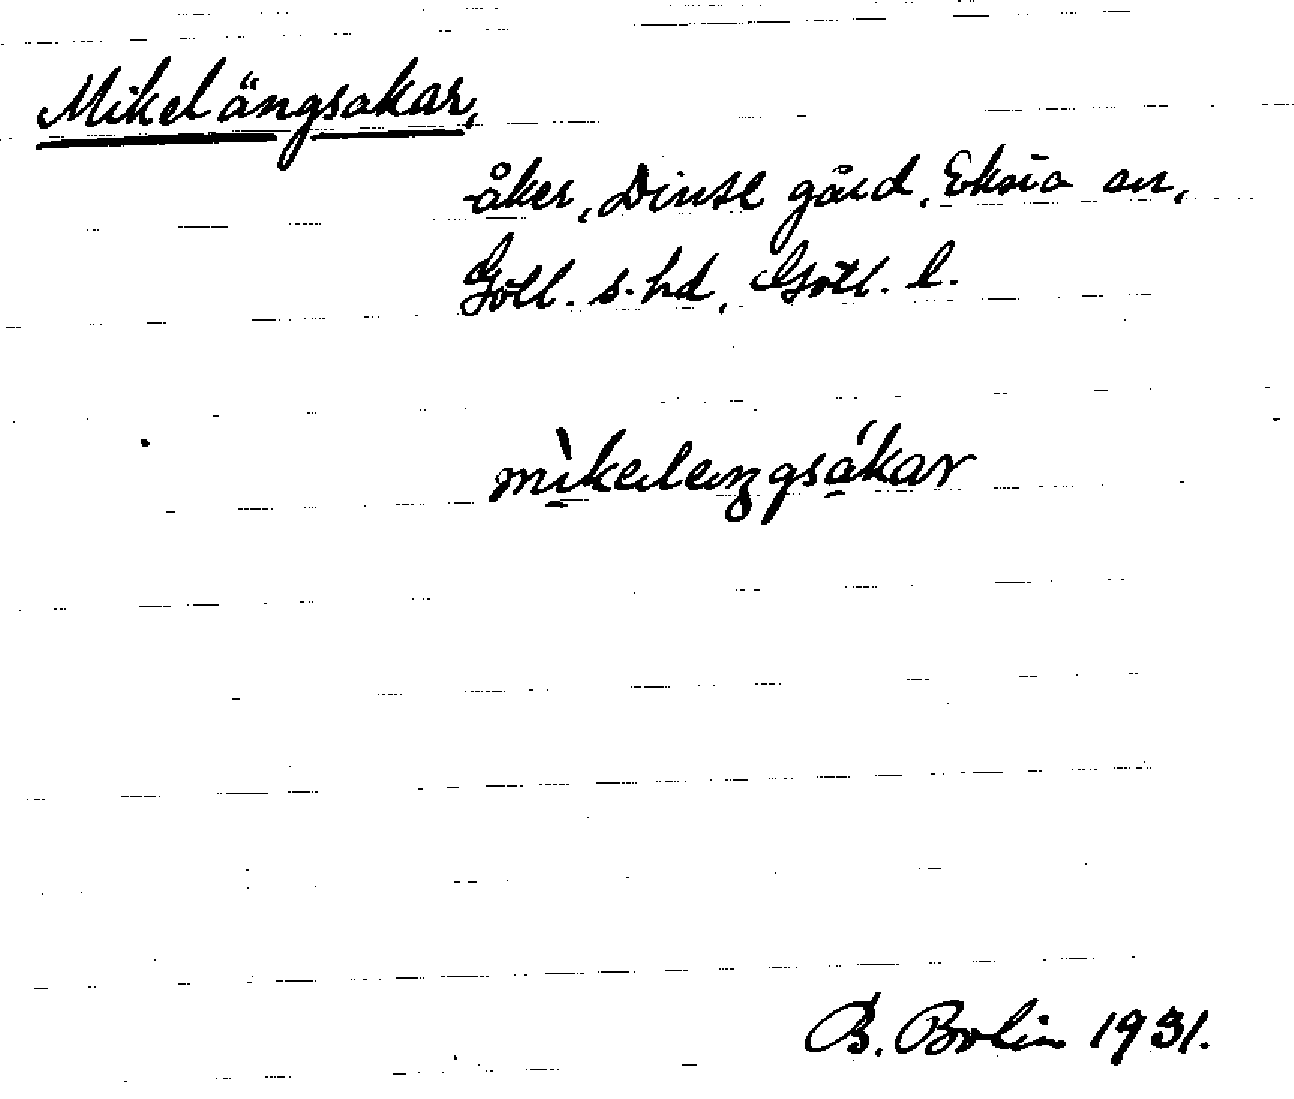 Mikelängsakar,
åker, Dintl gård, Eksta sn,
Gotl. s. hd, Gotl. l.
mìkelengsákar
B. Bolin 1931.